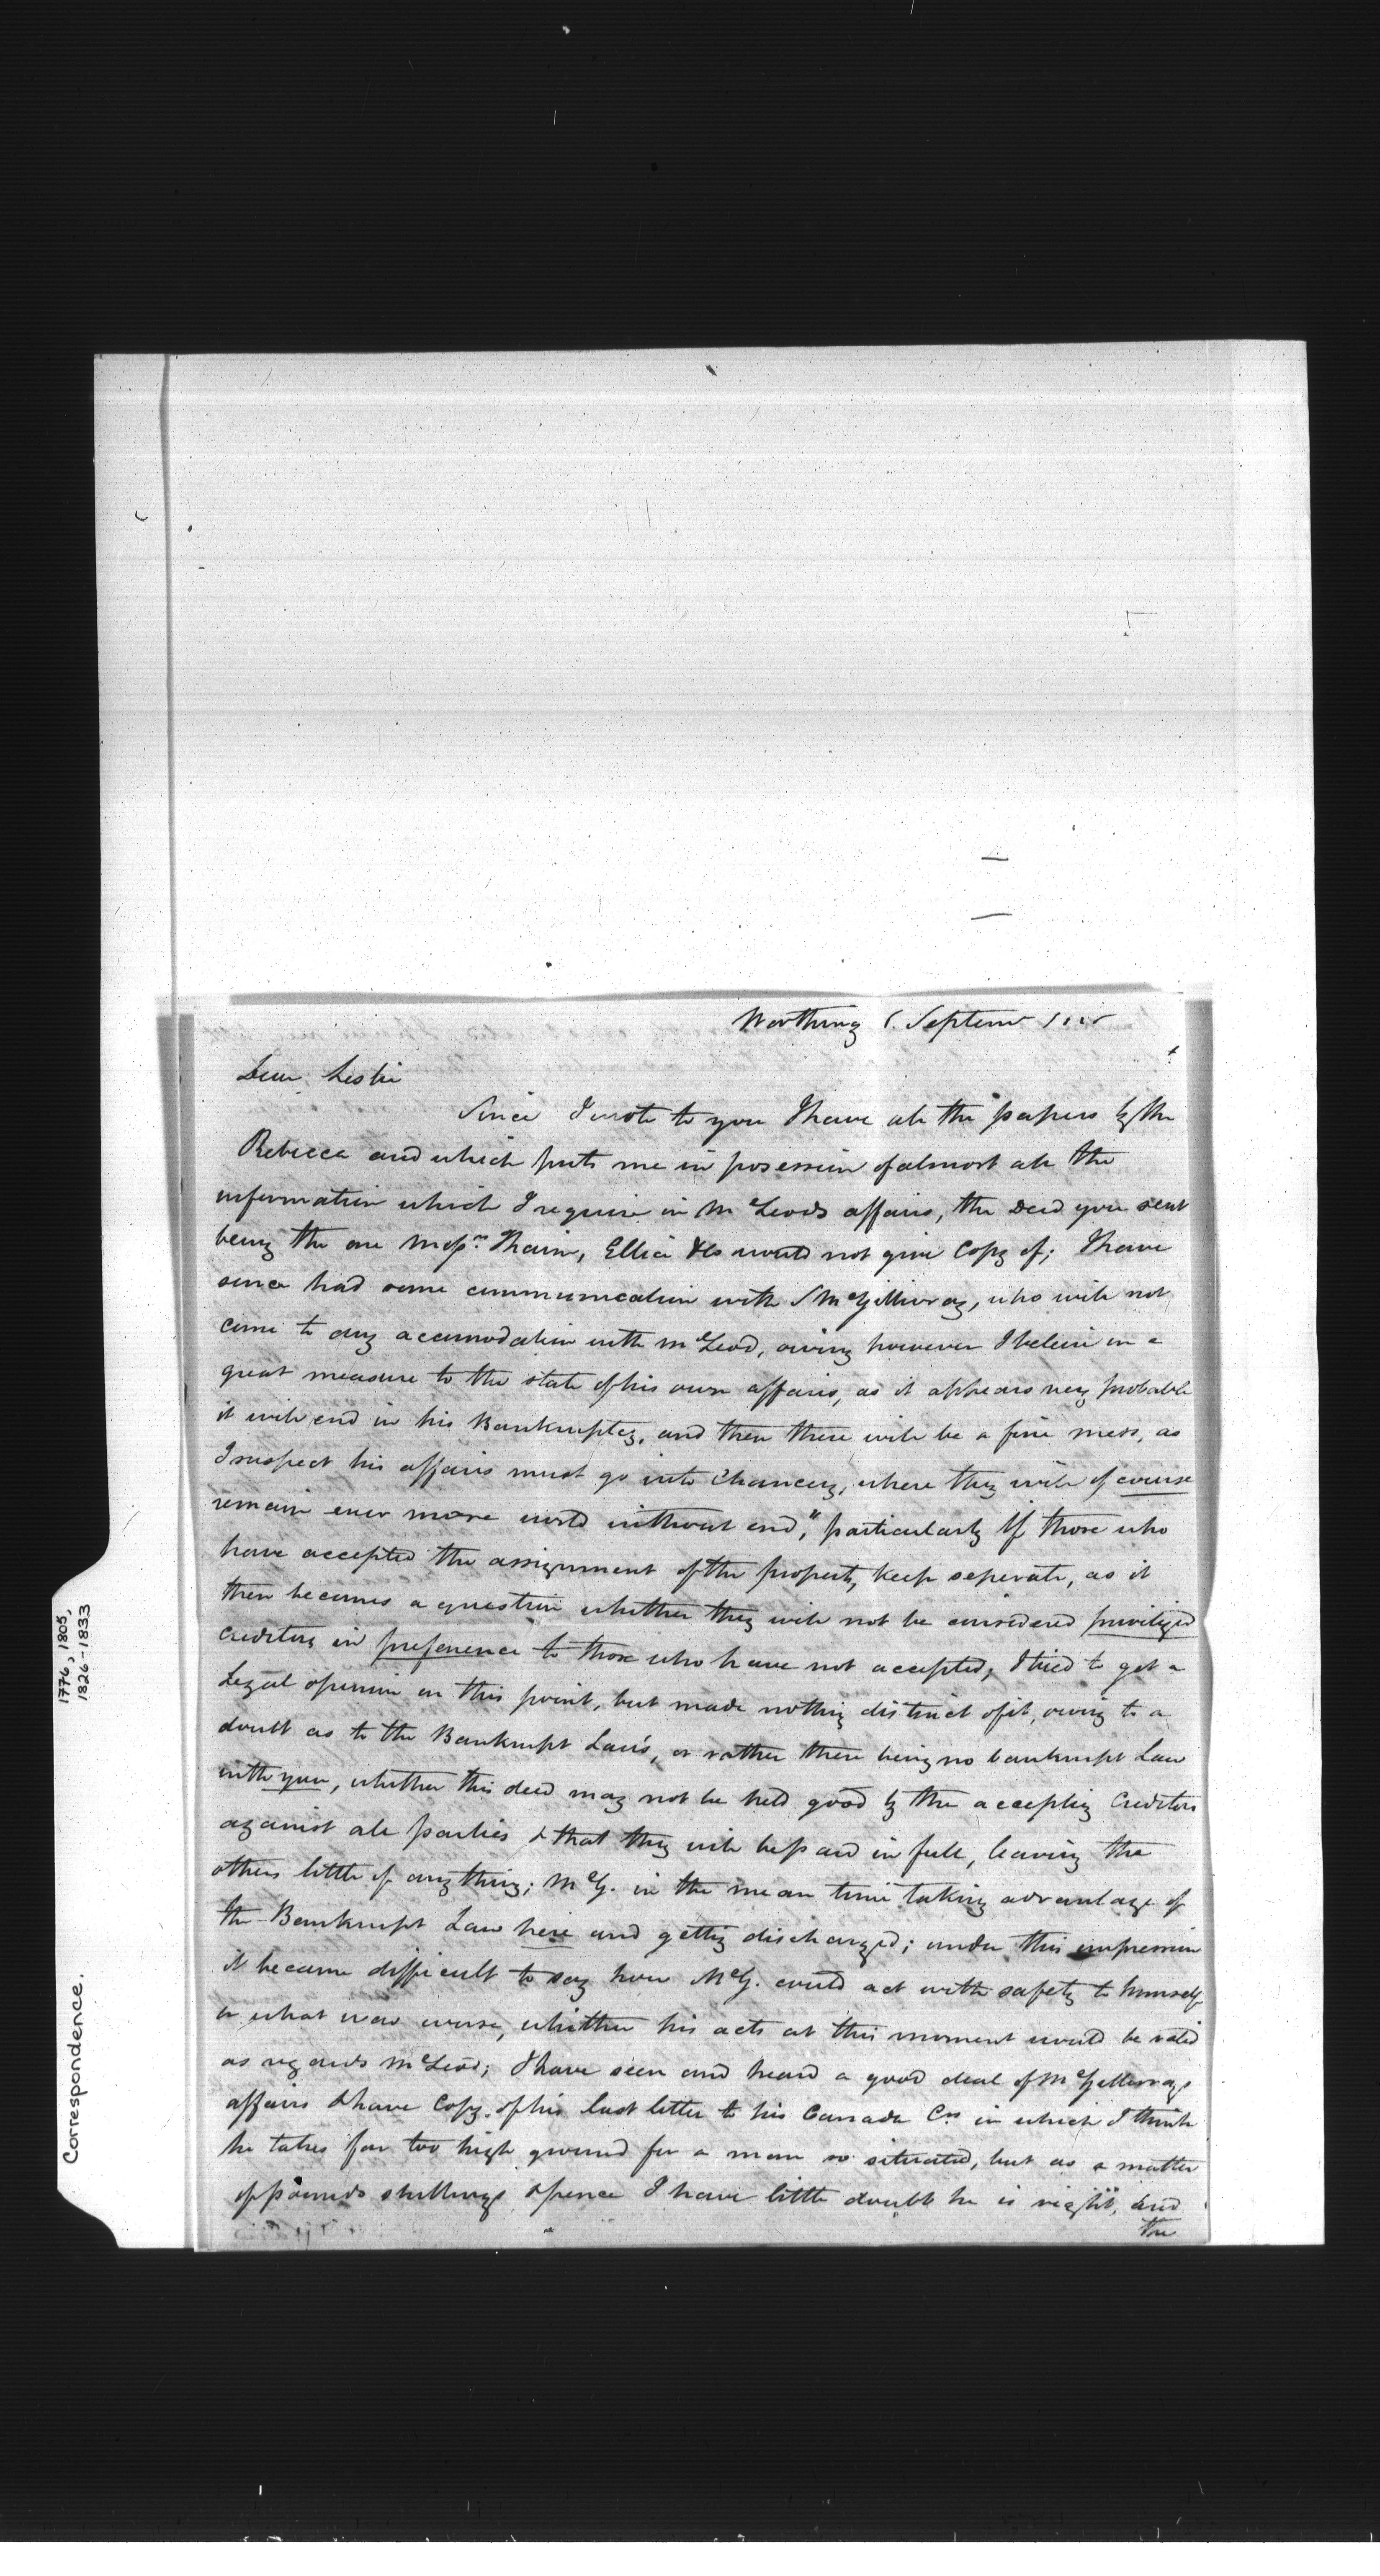 Worthing 6. Septemr
Dear Leslie
Since I wrote to you I have all the papers by the
Rebecca and which puts me in posession of almost all the
information which I require in McLeods affairs, the Deed you sent
being the one Messrs. Thain, Ellice & Co would not give Copy of; I have
since had some communication with S McGillivray, who will not
come to any accomodation with McLeod, owing however I beleive in a
great measure to the state of his own affairs, as it appears very probable
it will end in his Bankruptcy, and then there will be a fine mess, as
I suspect his affairs must go into Chancery, where they will of course
remain ever more world without end," particularly If those who
have accepted the assignment of the property, keep seperate, as it
then becomes a question whether they will not be considered priviliged
Creditors in preference to those who have not accepted; I tried to get a
Legal opinion on this point, but made nothing distinct of it, owing to a
doubt as to the Bankrupt Laws, or rather there being no bankrupt Law
with you, whether this deed may not be held good by the accepting Creditors
against all parties & that they will be paid in full, leaving the
others little if any thing; McG. in the mean time taking advantage of
the Bankrupt Law here and getting discharged; under this impression
it became difficult to say how McG. could act with safety to himself
or what was worse, whether his acts at this moment would be valid
as regards McLeod; I have seen and heard a good deal of McGillivrays
affairs & have Copy of his last letter to his Canada Crs in which I think
he takes far too high ground for a man so situated, but as a matter
of pounds shillings & pence I have little doubt he is right, and
the
1776, 1805,
1826-1833
Correspondence.